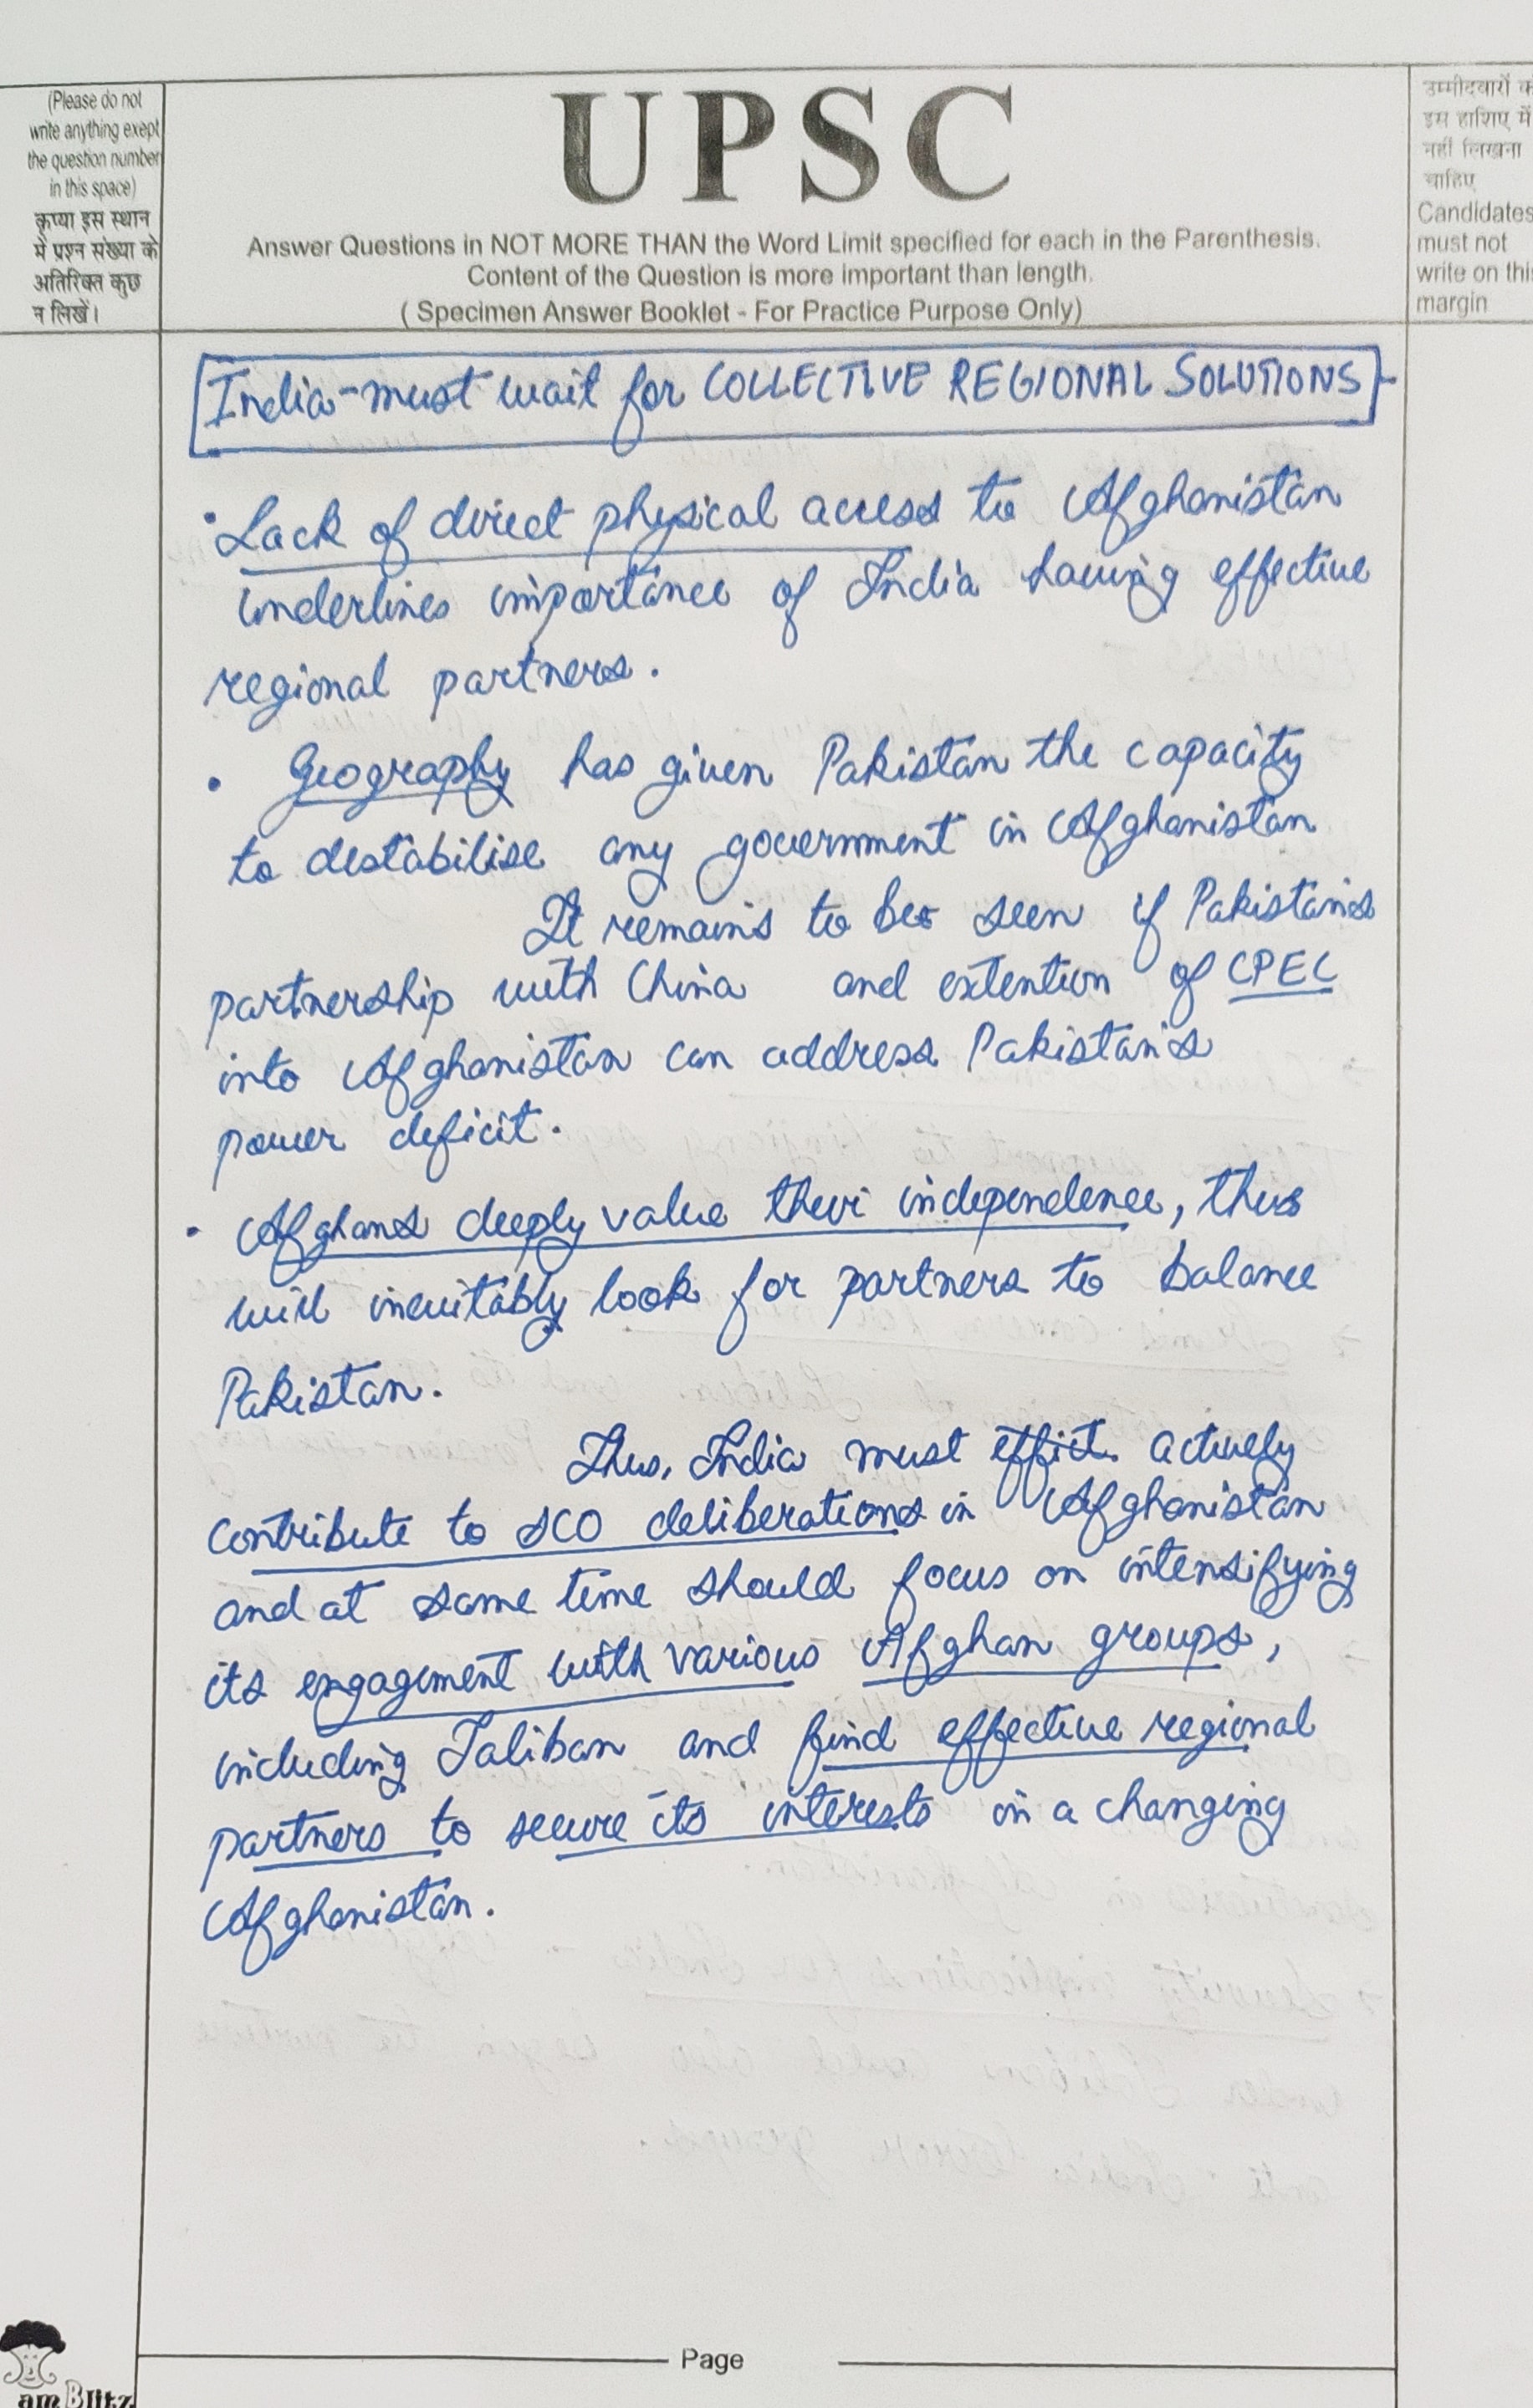 (Please do not
write anything exept
the question number
in this space)
कृप्या इस स्थान
में प्रश्न संख्या के
अतिरिक्त कुछ
न लिखें।
UPSC
Answer Questions in NOT MORE THAN the Word Limit specified for each in the Parenthesis.
Content of the Question is more important than length.
( Specimen Answer Booklet - For Practice Purpose Only)
उम्मीदवारों क
इस हाशिए में
नहीं लिखना
चाहिए
Candidates
must not
write on this
margin
India-must wait for COLLECTIVE REGIONAL SOLUTIONS-
• Lack of direct physical access to Afghanistan
underlines importance of India having effective
regional partners.
• Geography has given Pakistan the capacity
to destabilise any government in Afghanistan
It remains to be seen if Pakistan's
partnership with China and extention of CPEC
into Afghanistan can address Pakistan's
power deficit.
• Afghans deeply value their independence, thus
will inevitably look for partners to balance
Pakistan.
Thus, India must actively
contribute to SCO deliberations in Afghanistan
and at same time should focus on intensifying
its engagement with various Afghan groups,
including Taliban and find effective regional
partners to secure its interests in a changing
Afghanistan.
Page
am Blitz